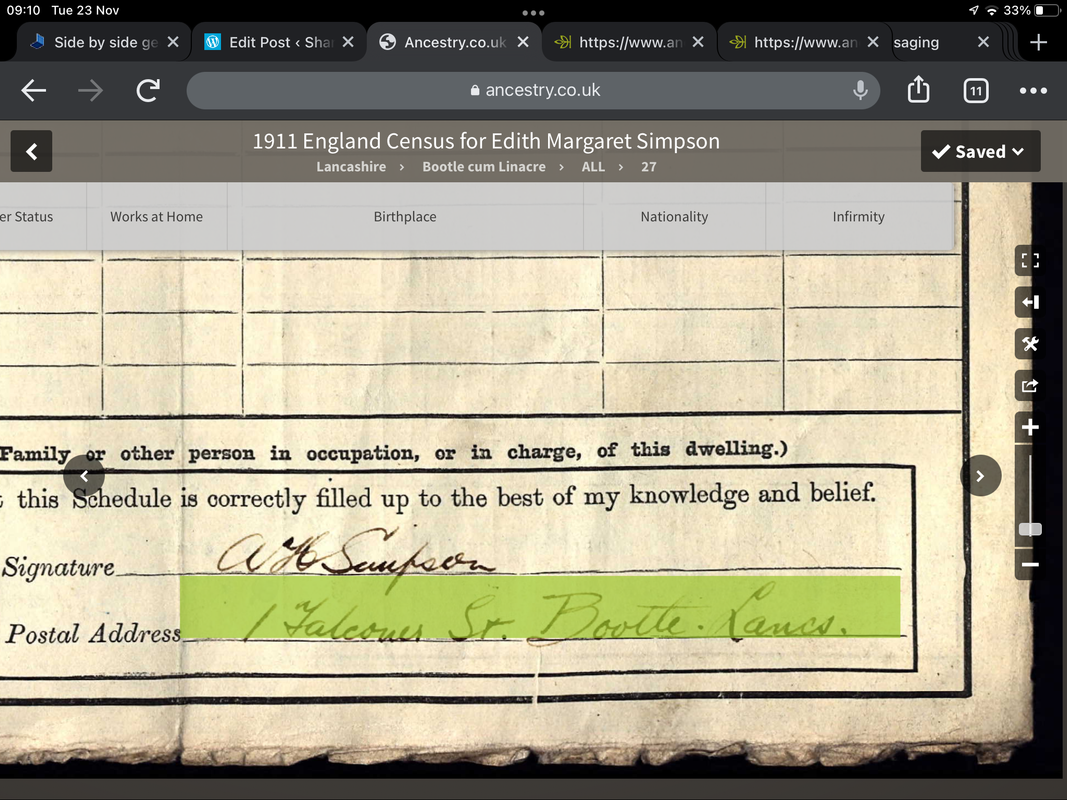 09:10 Tue 23 Nov
33%
Side by side ge
Edit Post ‹ Sha
Ancestry.co.uk
https://www.an
https://www.an
saging
ancestry.co.uk
11
1911 England Census for Edith Margaret Simpson
Lancashire › Bootle cum Linacre › ALL › 27
Saved
er Status
Works at Home
Birthplace
Nationality
Infirmity
Family or other person in occupation, or in charge, of this dwelling.)
t this Schedule is correctly filled up to the best of my knowledge and belief.
Signature A H Simpson
Postal Address 1 Falconer St. Bootle. Lancs.